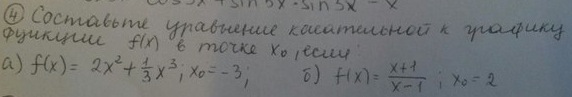 ④ Составьте уравнение касательной к графику
функции f(x) в точке x₀, если:
а) f(x) = 2x² + 1/3 x³; x₀ = -3; б) f(x) = (x+1)/(x-1); x₀ = 2